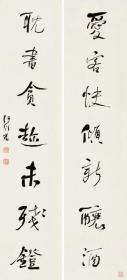 愛客快傾新釀酒
耽書貪趁未殘鐙